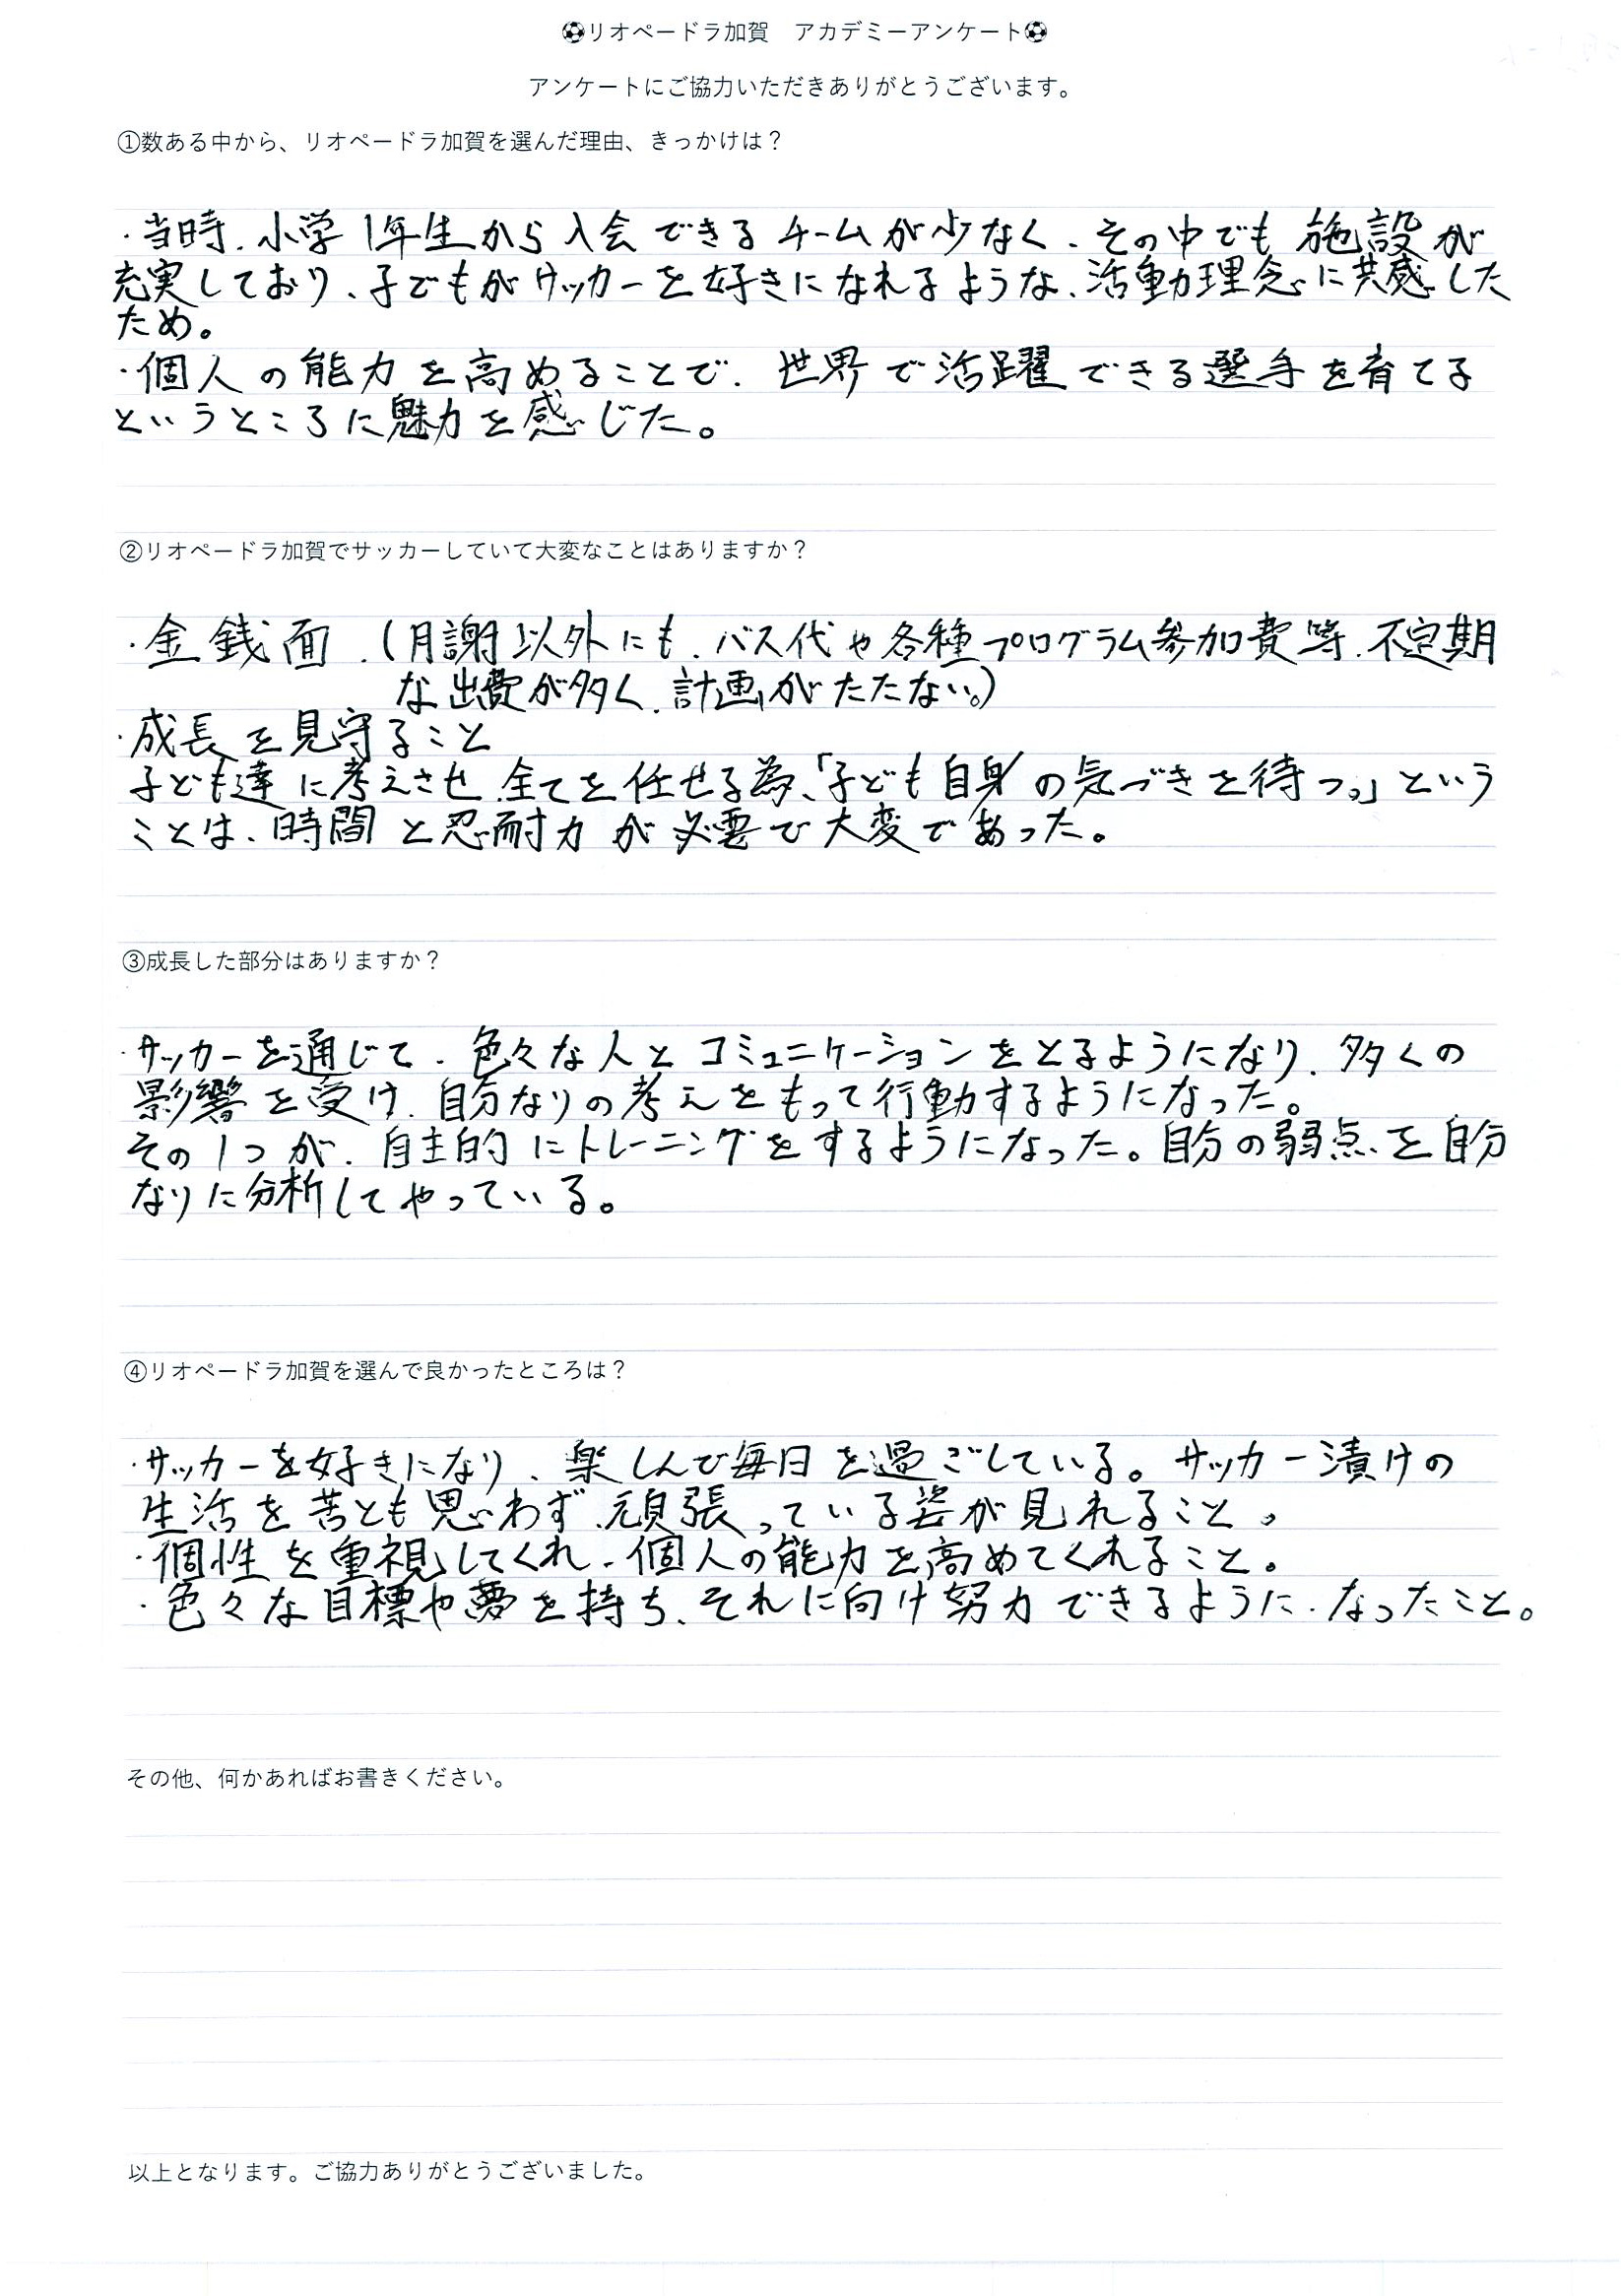 ⚽リオペードラ加賀　アカデミーアンケート⚽
アンケートにご協力いただきありがとうございます。
①数ある中から、リオペードラ加賀を選んだ理由、きっかけは？
・当時、小学1年生から入会できるチームが少なく、その中でも施設が
充実しており、子どもがサッカーを好きになれるような、活動理念に共感した
ため。
・個人の能力を高めることで、世界で活躍できる選手を育てる
というところに魅力を感じた。
②リオペードラ加賀でサッカーしていて大変なことはありますか？
・金銭面、(月謝以外にも、バス代や各種プログラム参加費等、不定期
な出費が多く、計画がたたない。)
・成長を見守ること
子ども達に考えさせ、全てを任せる為、「子ども自身の気づきを待つ。」という
ことは、時間と忍耐力が必要で大変であった。
③成長した部分はありますか？
・サッカーを通じて、色々な人とコミュニケーションをとるようになり、多くの
影響を受け、自分なりの考えをもって行動するようになった。
その1つが、自主的にトレーニングをするようになった。自分の弱点を自分
なりに分析してやっている。
④リオペードラ加賀を選んで良かったところは？
・サッカーを好きになり、楽しんで毎日を過ごしている。サッカー漬けの
生活を苦とも思わず、頑張っている姿が見れること。
・個性を重視してくれ、個人の能力を高めてくれること。
・色々な目標や夢を持ち、それに向け努力できるように、なったこと。
その他、何かあればお書きください。
以上となります。ご協力ありがとうございました。